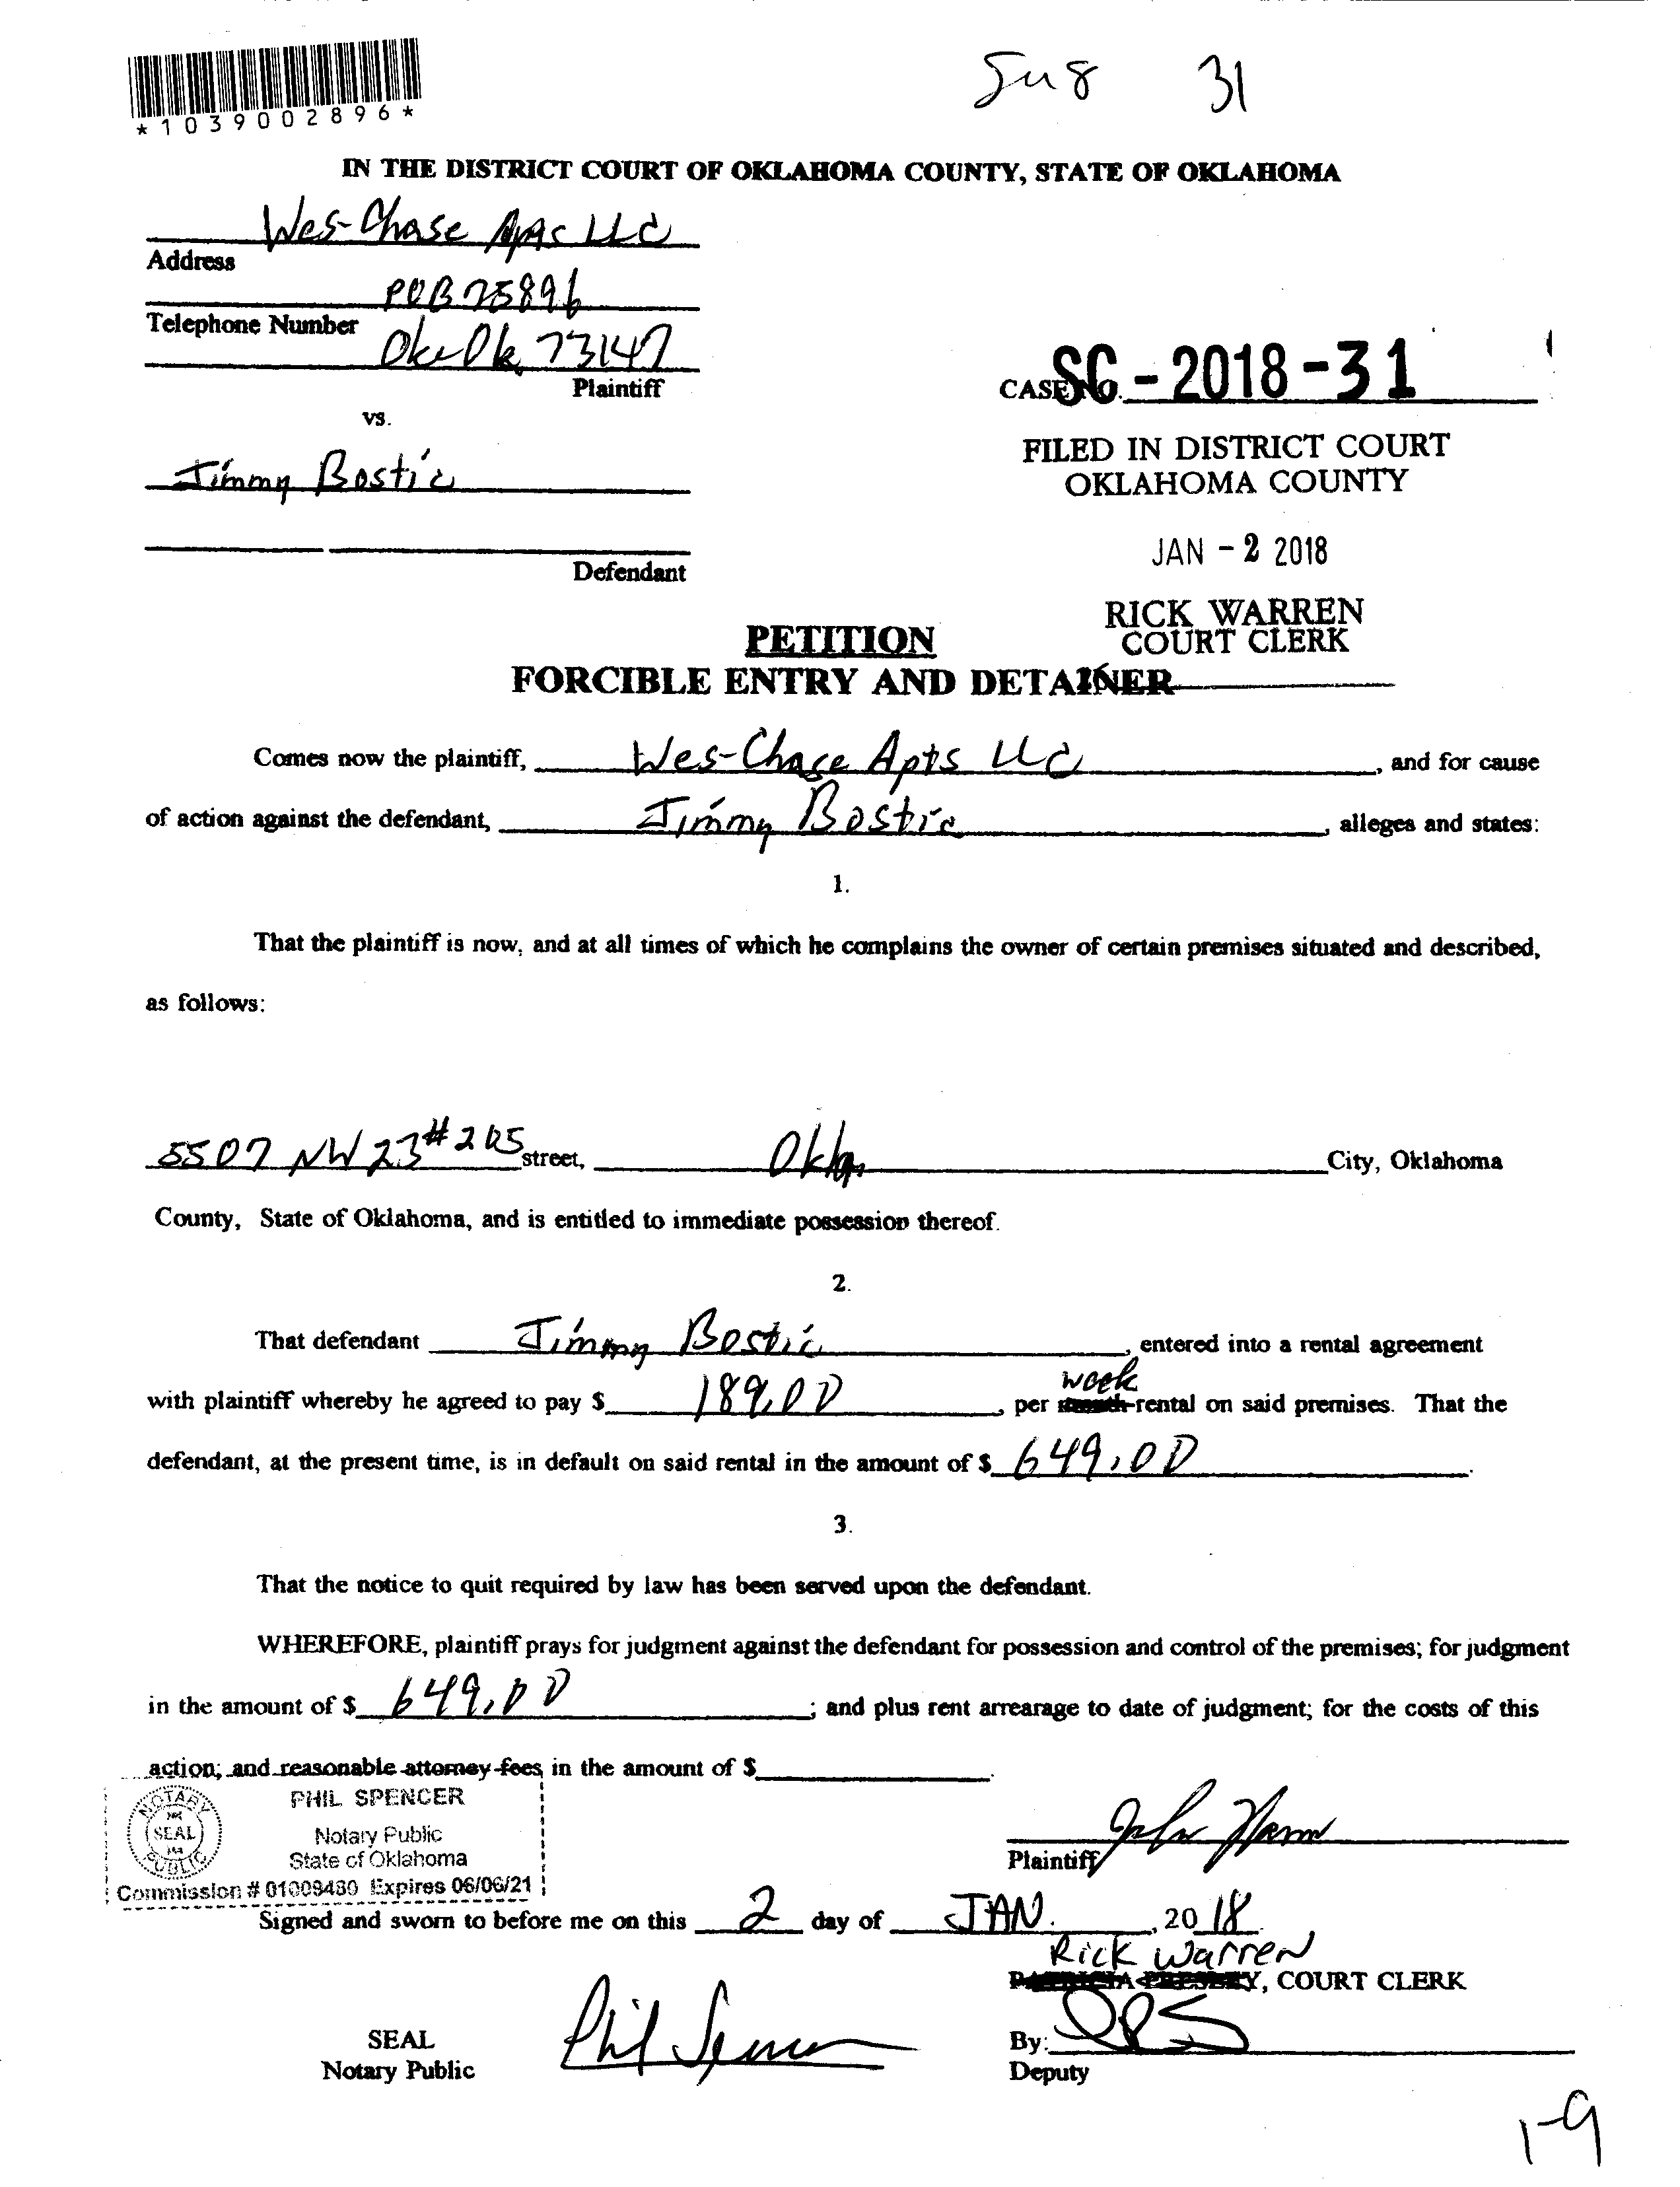 Sug 31
*1039002896*
IN THE DISTRICT COURT OF OKLAHOMA COUNTY, STATE OF OKLAHOMA
Wes-Chase Apts LLC
Address
POB 75896
Telephone Number
Okc Ok 73147
Plaintiff
CASE NO. SC-2018-31
vs.
FILED IN DISTRICT COURT
OKLAHOMA COUNTY
Jimmy Bostic
JAN - 2 2018
Defendant
RICK WARREN
COURT CLERK
PETITION
FORCIBLE ENTRY AND DETAINER
Comes now the plaintiff, Wes-Chase Apts LLC, and for cause
of action against the defendant, Jimmy Bostic, alleges and states:
1.
That the plaintiff is now, and at all times of which he complains the owner of certain premises situated and described,
as follows:
5507 NW 23 # street, Okla City, Oklahoma
County, State of Oklahoma, and is entitled to immediate possession thereof.
2.
That defendant Jimmy Bostic, entered into a rental agreement
week
with plaintiff whereby he agreed to pay $ 189.00, per month rental on said premises. That the
defendant, at the present time, is in default on said rental in the amount of $ 649.00.
3.
That the notice to quit required by law has been served upon the defendant.
WHEREFORE, plaintiff prays for judgment against the defendant for possession and control of the premises; for judgment
in the amount of $ 649.00; and plus rent arrearage to date of judgment; for the costs of this
action; and reasonable attorney fees in the amount of $.
NOTARY SEAL PUBLIC
PHIL SPENCER
Notary Public
State of Oklahoma
Commission # 01009480 Expires 06/06/21
Plaintiff
Signed and sworn to before me on this 2 day of JAN., 20 18.
Rick Warren
PATRICIA PRESLEY, COURT CLERK
SEAL
Notary Public
Phil Spencer
By:
Deputy
1-9